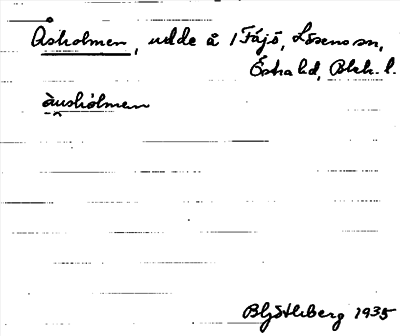 Åsholmen, udde å 1 Fäjö, Lösens sn,
Östra hd, Blek. l.
àusholmen
Bljöthberg 1935